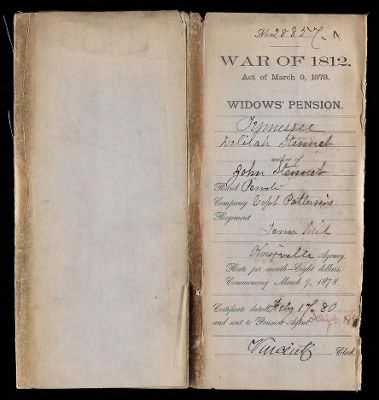 No 28857. A
WAR OF 1812.
Act of March 9, 1878.
WIDOWS' PENSION.
Tennessee
Delilah Stennet
widow of
John Stennet
Rank Private
Company Capt Patterson's
Regiment
Tenn Mil
Knoxville Agency.
Rate per month—Eight dollars.
Commencing March 9, 1878.
Certificate dated Feby 17. 80
and sent to Pension Agent
Vincent Clerk.